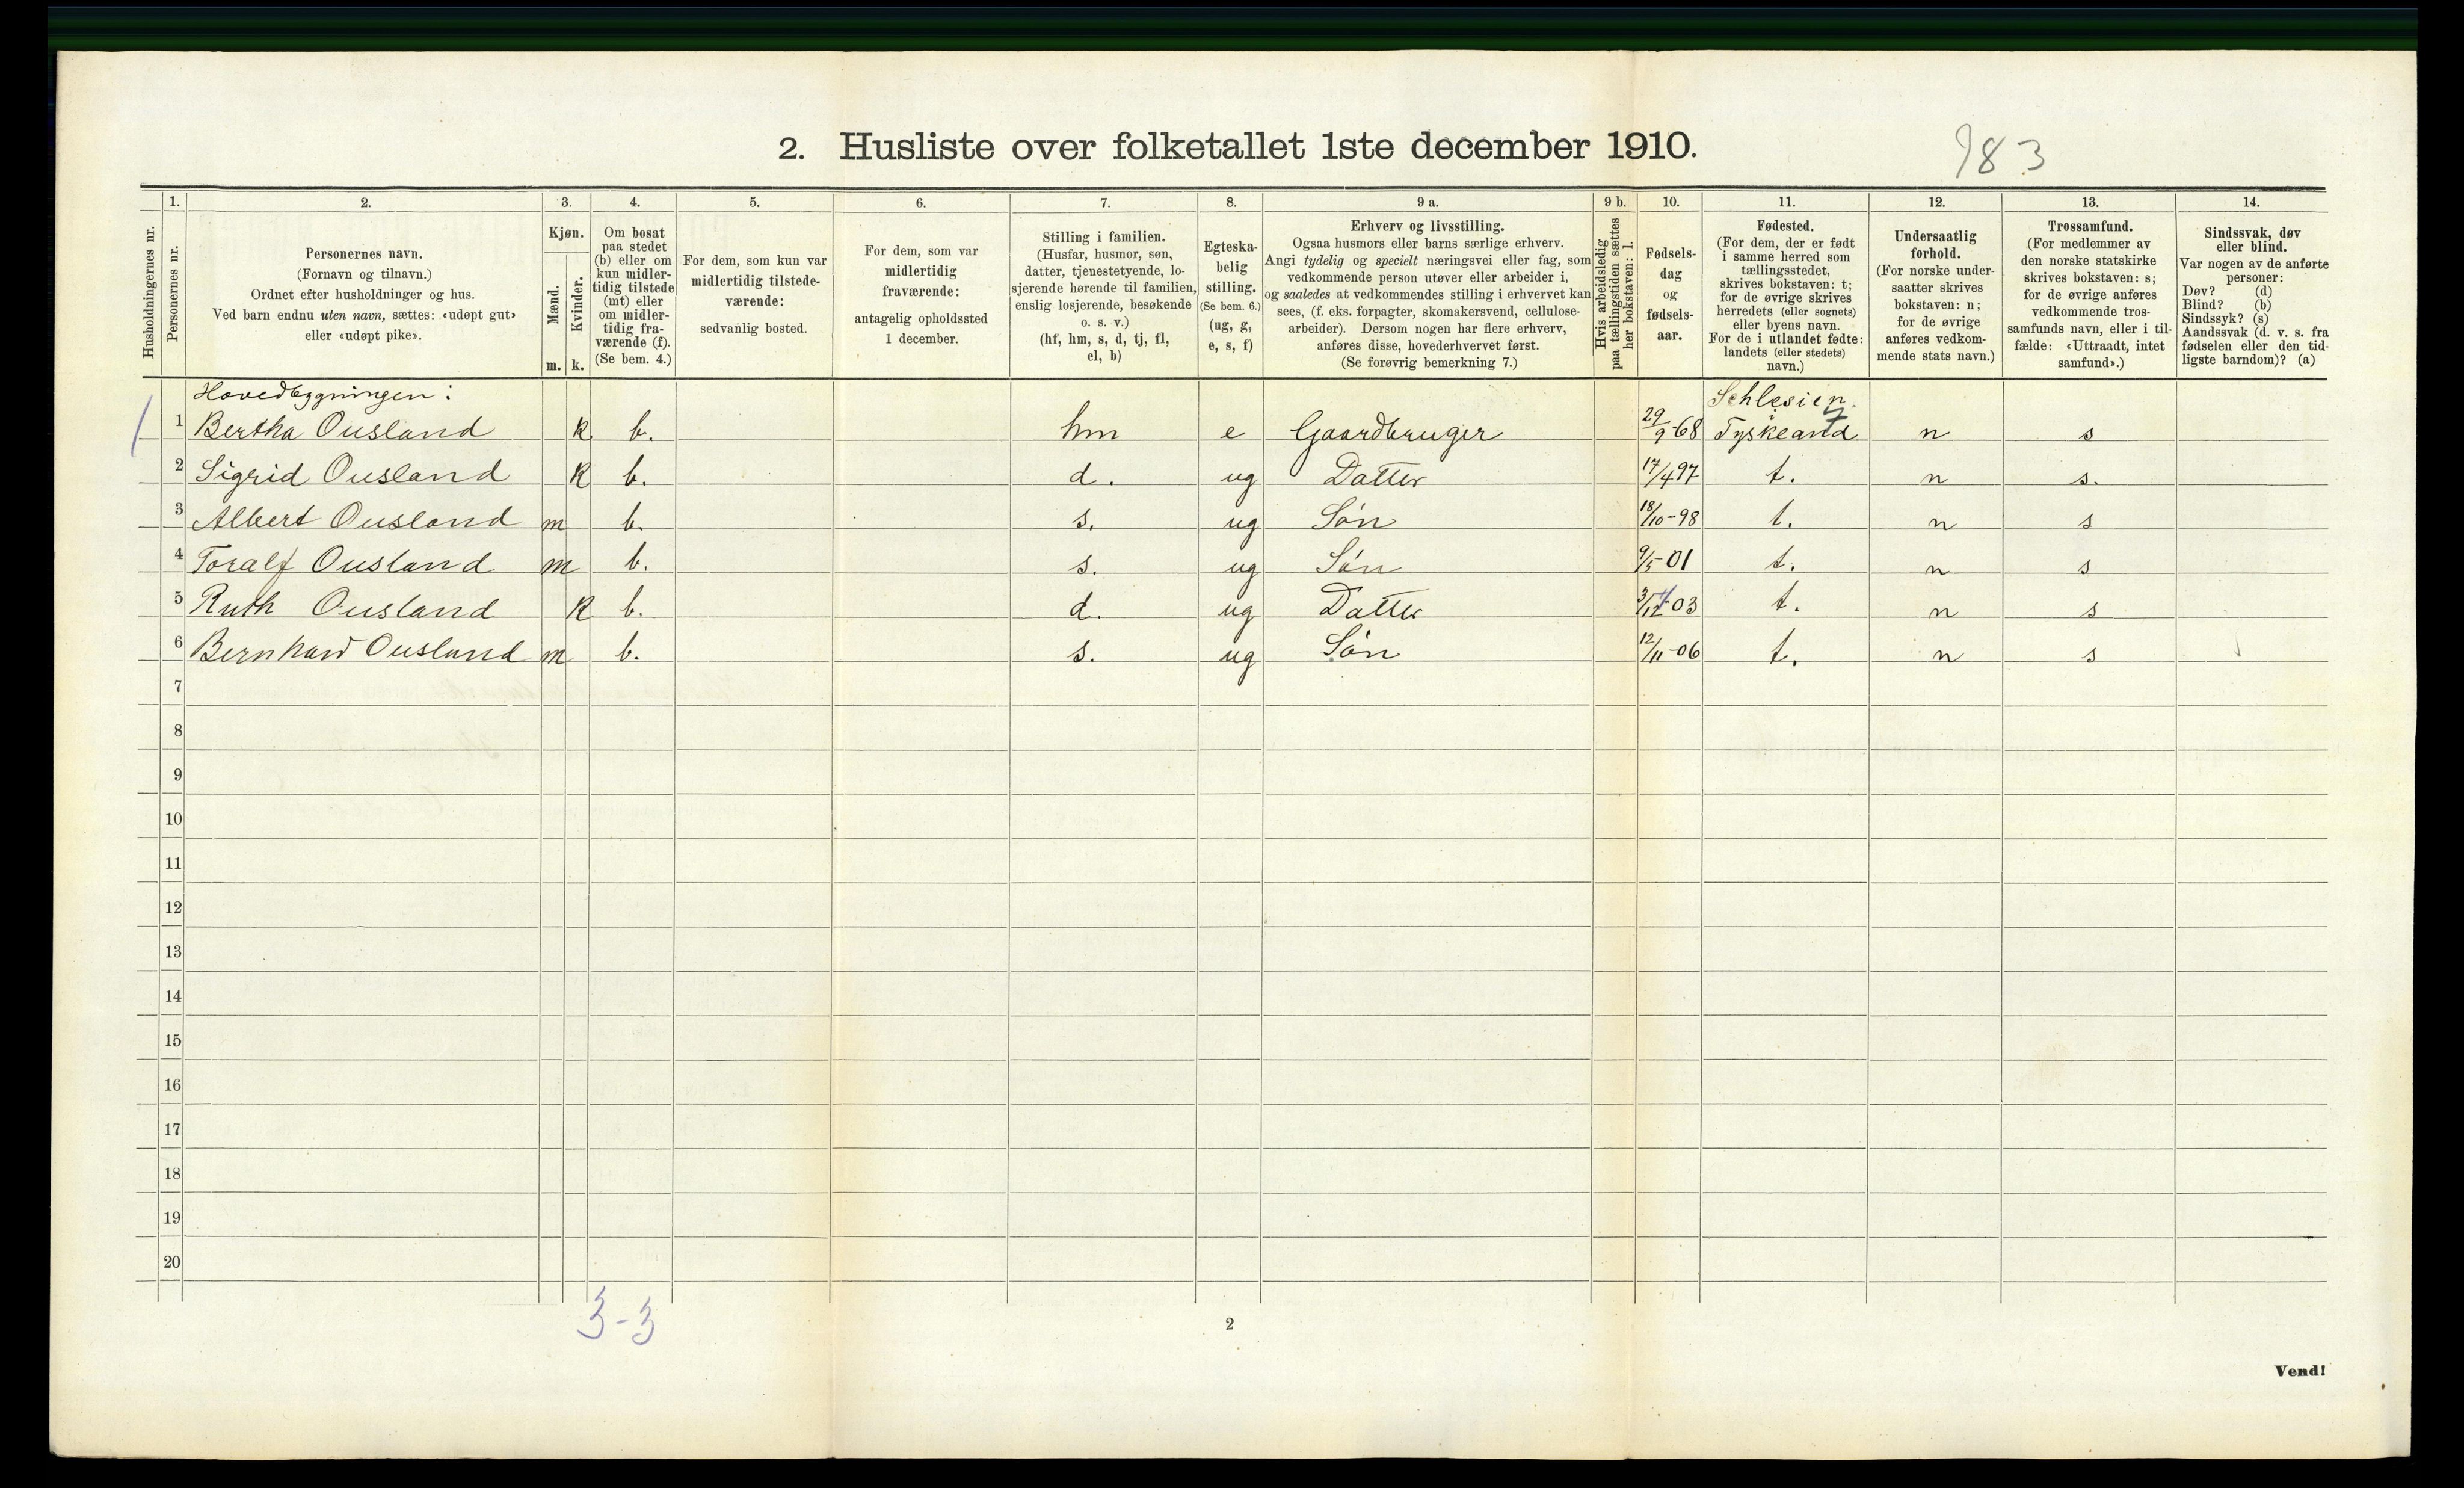 2. Husliste over folketallet 1ste december 1910.
983
1. 2. 3. 4. 5. 6. 7. 8. 9 a. 9 b. 10. 11. 12. 13. 14.
Husholdningernes nr.
Personernes nr.
Personernes navn.
(Fornavn og tilnavn.)
Ordnet efter husholdninger og hus.
Ved barn endnu uten navn, sættes: «udøpt gut»
eller «udøpt pike».
Kjøn.
Mænd.
Kvinder.
m. k.
Om bosat
paa stedet
(b) eller om
kun midler-
tidig tilstede
(mt) eller
om midler-
tidig fra-
værende (f).
(Se bem. 4.)
For dem, som kun var
midlertidig tilstede-
værende:
sedvanlig bosted.
For dem, som var
midlertidig
fraværende:
antagelig opholdssted
1 december.
Stilling i familien.
(Husfar, husmor, søn,
datter, tjenestetyende, lo-
sjerende hørende til familien,
enslig losjerende, besøkende
o. s. v.)
(hf, hm, s, d, tj, fl,
el, b)
Egteska-
belig
stilling.
(Se bem. 6.)
(ug, g,
e, s, f)
Erhverv og livsstilling.
Ogsaa husmors eller barns særlige erhverv.
Angi tydelig og specielt næringsvei eller fag, som
vedkommende person utøver eller arbeider i,
og saaledes at vedkommendes stilling i erhvervet kan
sees, (f. eks. forpagter, skomakersvend, cellulose-
arbeider). Dersom nogen har flere erhverv,
anføres disse, hovederhvervet først.
(Se forøvrig bemerkning 7.)
Hvis arbeidsledig
paa tællingstiden sættes
her bokstaven: l.
Fødsels-
dag
og
fødsels-
aar.
Fødested.
(For dem, der er født
i samme herred som
tællingsstedet,
skrives bokstaven: t;
for de øvrige skrives
herredets (eller sognets)
eller byens navn.
For de i utlandet fødte:
landets (eller stedets)
navn.)
Undersaatlig
forhold.
(For norske under-
saatter skrives
bokstaven: n;
for de øvrige
anføres vedkom-
mende stats navn.)
Trossamfund.
(For medlemmer av
den norske statskirke
skrives bokstaven: s;
for de øvrige anføres
vedkommende tros-
samfunds navn, eller i til-
fælde: «Uttraadt, intet
samfund».)
Sindssvak, døv
eller blind.
Var nogen av de anførte
personer:
Døv? (d)
Blind? (b)
Sindssyk? (s)
Aandssvak (d. v. s. fra
fødselen eller den tid-
ligste barndom)? (a)
Hovedbygningen: Schlesien.
1 1 Bertha Ousland k b. hm e Gaardbruger 29/9-68 Tyskland n s
2 Sigrid Ousland k b. d. ug Datter 17/4 97 t. n s.
3 Albert Ousland m b. s. ug Søn 18/10-98 t. n s
4 Toralf Ousland m b. s. ug Søn 9/5-01 t. n s
5 Ruth Ousland k b. d. ug Datter 3/12-03 t. n s
6 Bernhard Ousland m b. s. ug Søn 12/11-06 t. n s
7
8
9
10
11
12
13
14
15
16
17
18
19
20
3-3
2
Vend!